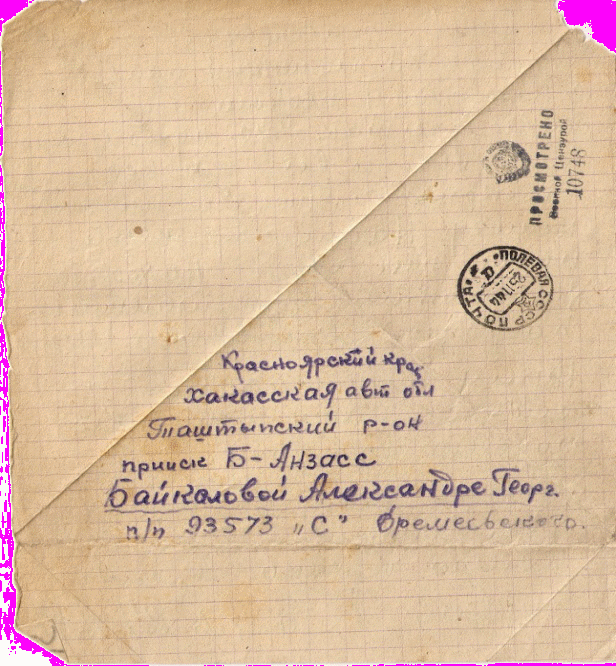 ПРОСМОТРЕНО
Военной Цензурой
10748
ПОЛЕВАЯ ПОЧТА СССР
Красноярский край
Хакасская авт обл
Таштыпский р-он
прииск Б-Анзасс
Байкаловой Александре Георг.
п/п 93573 „С"